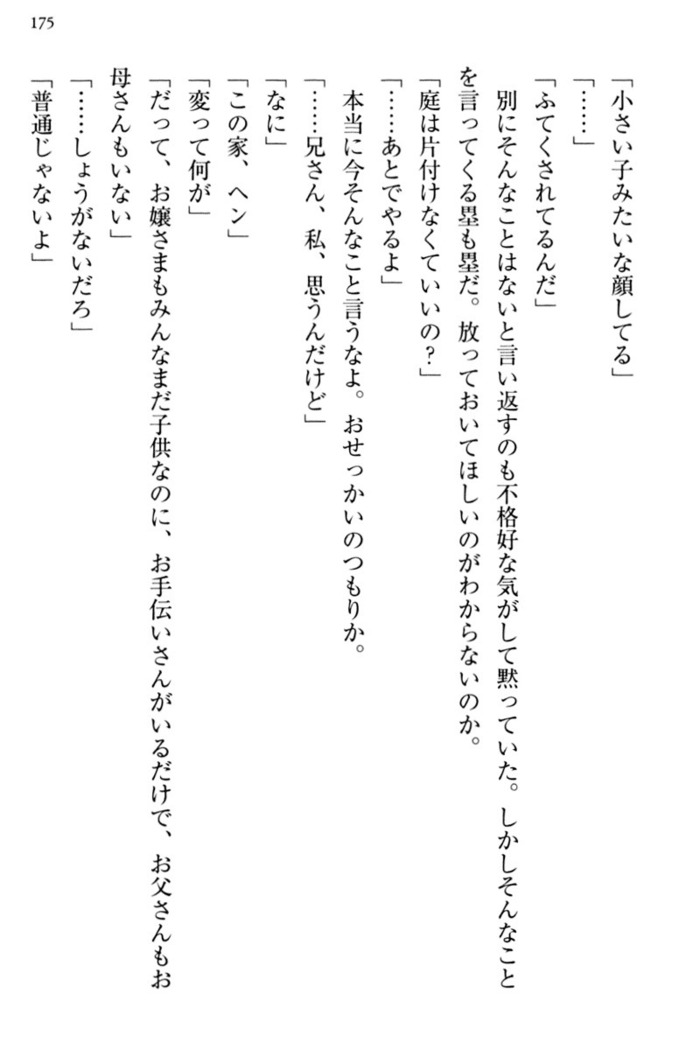 175
「小さい子みたいな顔してる」
「……」
「ふてくされてるんだ」
　別にそんなことはないと言い返すのも不格好な気がして黙っていた。しかしそんなこと
を言ってくる塁も塁だ。放っておいてほしいのがわからないのか。
「庭は片付けなくていいの？」
「……あとでやるよ」
　本当に今そんなこと言うなよ。おせっかいのつもりか。
「……兄さん、私、思うんだけど」
「なに」
「この家、ヘン」
「変って何が」
「だって、お嬢さまもみんなまだ子供なのに、お手伝いさんがいるだけで、お父さんもお
母さんもいない」
「……しょうがないだろ」
「普通じゃないよ」